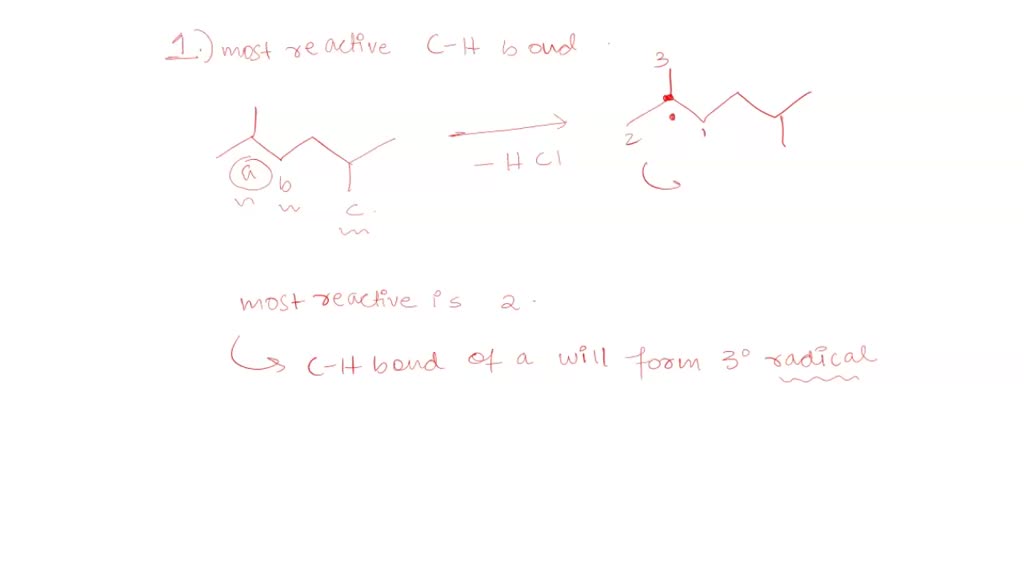 1.) most reactive C-H bond .
3
2
1
a
b
c
- HCl
most reactive is 2 .
C-H bond of a will form 3° radical